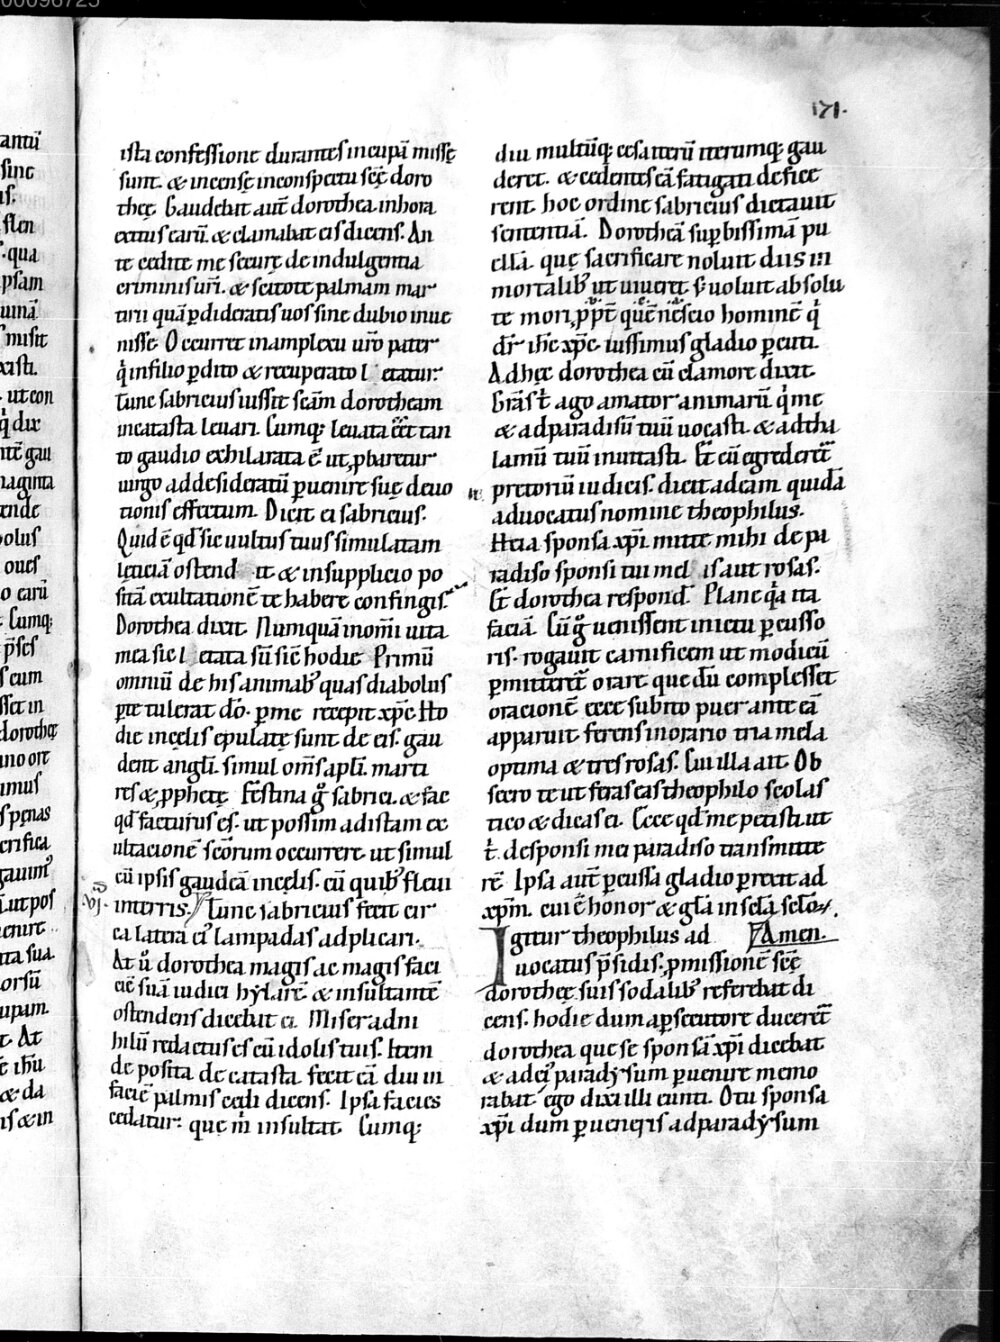 00096725
171.
antū
sine
flen
qua
psam
misit
ut con
q̇ dix
gau
maginta
ende
bolus
oues
o carū
Cumq;
p̄ses
s eum
sset in
dorotheę
ano ore
imus
s penas
crifica
ut pos
enire
ita sua
orsū
upam
At
e ih̄u
& da
is & in
ista confessione durantes incupā missę
sunt. & incensę inconspectu sc̄ę doro
theę. Gaudebat aut̄ dorothea inhora
exitus earū. & clamabat eis dicens. An
te cedite me securę de indulgentia
criminis ur̄i. & scitote palmam mar
tirii quā ꝑdideratis uos sine dubio inue
nisse. Occurret inamplexu ur̄o pater
q̇ infilio ꝑdito & recuperato l etatur.
Tunc sabricius iussit sc̄am dorotheam
incatasta leuari. Cumq; leuata eēt tan
to gaudio exhilarata ē ut ꝓbaretur
uirgo ad desideratū ꝑuenire suę deuo
tionis effectum. Dicit ei sabricius.
Quid ē qd̄ sic uultus tuus simulatam
lęticiā ostend it & insupplicio po
sitā exultationē te habere confingis.
Dorothea dixit. Numquā inom̄i uita
mea sic l etata sū sic̄ hodie. Primū
omniū de his animab; quas diabolus
ꝑ te tulerat d̄o. ꝑ me recepit xp̄c. Ho
die incęlis epulatę sunt de eis. gau
dent angl̄i. simul om̄s apl̄i. marti
res & ꝓphetę. Festina g̊ sabrici. & fac
qd̄ facturus es. ut possim ad istam ex
ultacionē sc̄orum occurrere. ut simul
cū ipsis gaudeā incęlis. cū quib; fleui
interris. Tunc sabricius fecit cir
ca latera ei; lampadas adplicari.
At ů dorothea magis ac magis faci
ē suā iudici hylarē & insultantē
ostendens dicebat ei. Miser ad ni
hilū redactus es cū idolis tuis. Item
de posita de catasta fecit eā diu in
faciē palmis cedi dicens. Ipsa facies
cedatur. que m̄ insultat. Cumq;
diu multūq; cęsa iterū iterumq; gau
deret. & cedentes eā fatigati defice
rent. hoc ordine sabricius dictauit
sententiā. Dorotheā suꝑbissimā pu
ellā. quę sacrificare noluit diis in
mortalib; ut uiueret. s; uoluit absolu
te mori, ꝓpt̄ quē nescio hominē q̇
dr̄ ih̄c xp̄c. iussimus gladio ꝑcuti.
Ad hęc dorothea cū clamore dixit.
Gr̄as t̄ ago amator animarū. q̇ me
& ad paradisū tuū uocasti. & ad tha
lamū tuū inuitasti. Et cū egrederet̄
pretoriū iudicis. dicit ad eam quidā
aduocatus nomine theophilus.
Heia sponsa xp̄i mitte mihi de pa
radiso sponsi tui mel is aut rosas.
Et dorothea respond̄. Plane q̇a ita
faciā. Cū g̊ uenissent in ictu ꝑcusso
ris. rogauit carnificem ut modicū
ꝑmitteret̄ orare. que dū complesset
oracionē ecce subito puer ante eā
apparuit ferens inorario tria mela
optima & tres rosas. Cui illa ait. Ob
secro te ut feras eas theophilo scolas
tico & dicas ei. Ecce qd̄ me petisti. ut
t̄. de sponsi mei paradiso transmitte
rē. Ipsa aut̄ ꝑcussa gladio ꝑrexit ad
xp̄m. cui ē honor & gl̄a in sc̄la sc̄lo.
Amen.
Igitur theophilus ad
uocatus p̄sidis. ꝓmissionē sc̄ę
dorotheę suis sodalib; referebat di
cens. hodie dum a ꝑsecutore duceret̄
dorothea que se sponsā xp̄i dicebat
& ad ei; paradysum ꝑuenire memo
rabat ego dixi illi eunti. O tu sponsa
xp̄i dum ꝑueneris ad paradysum